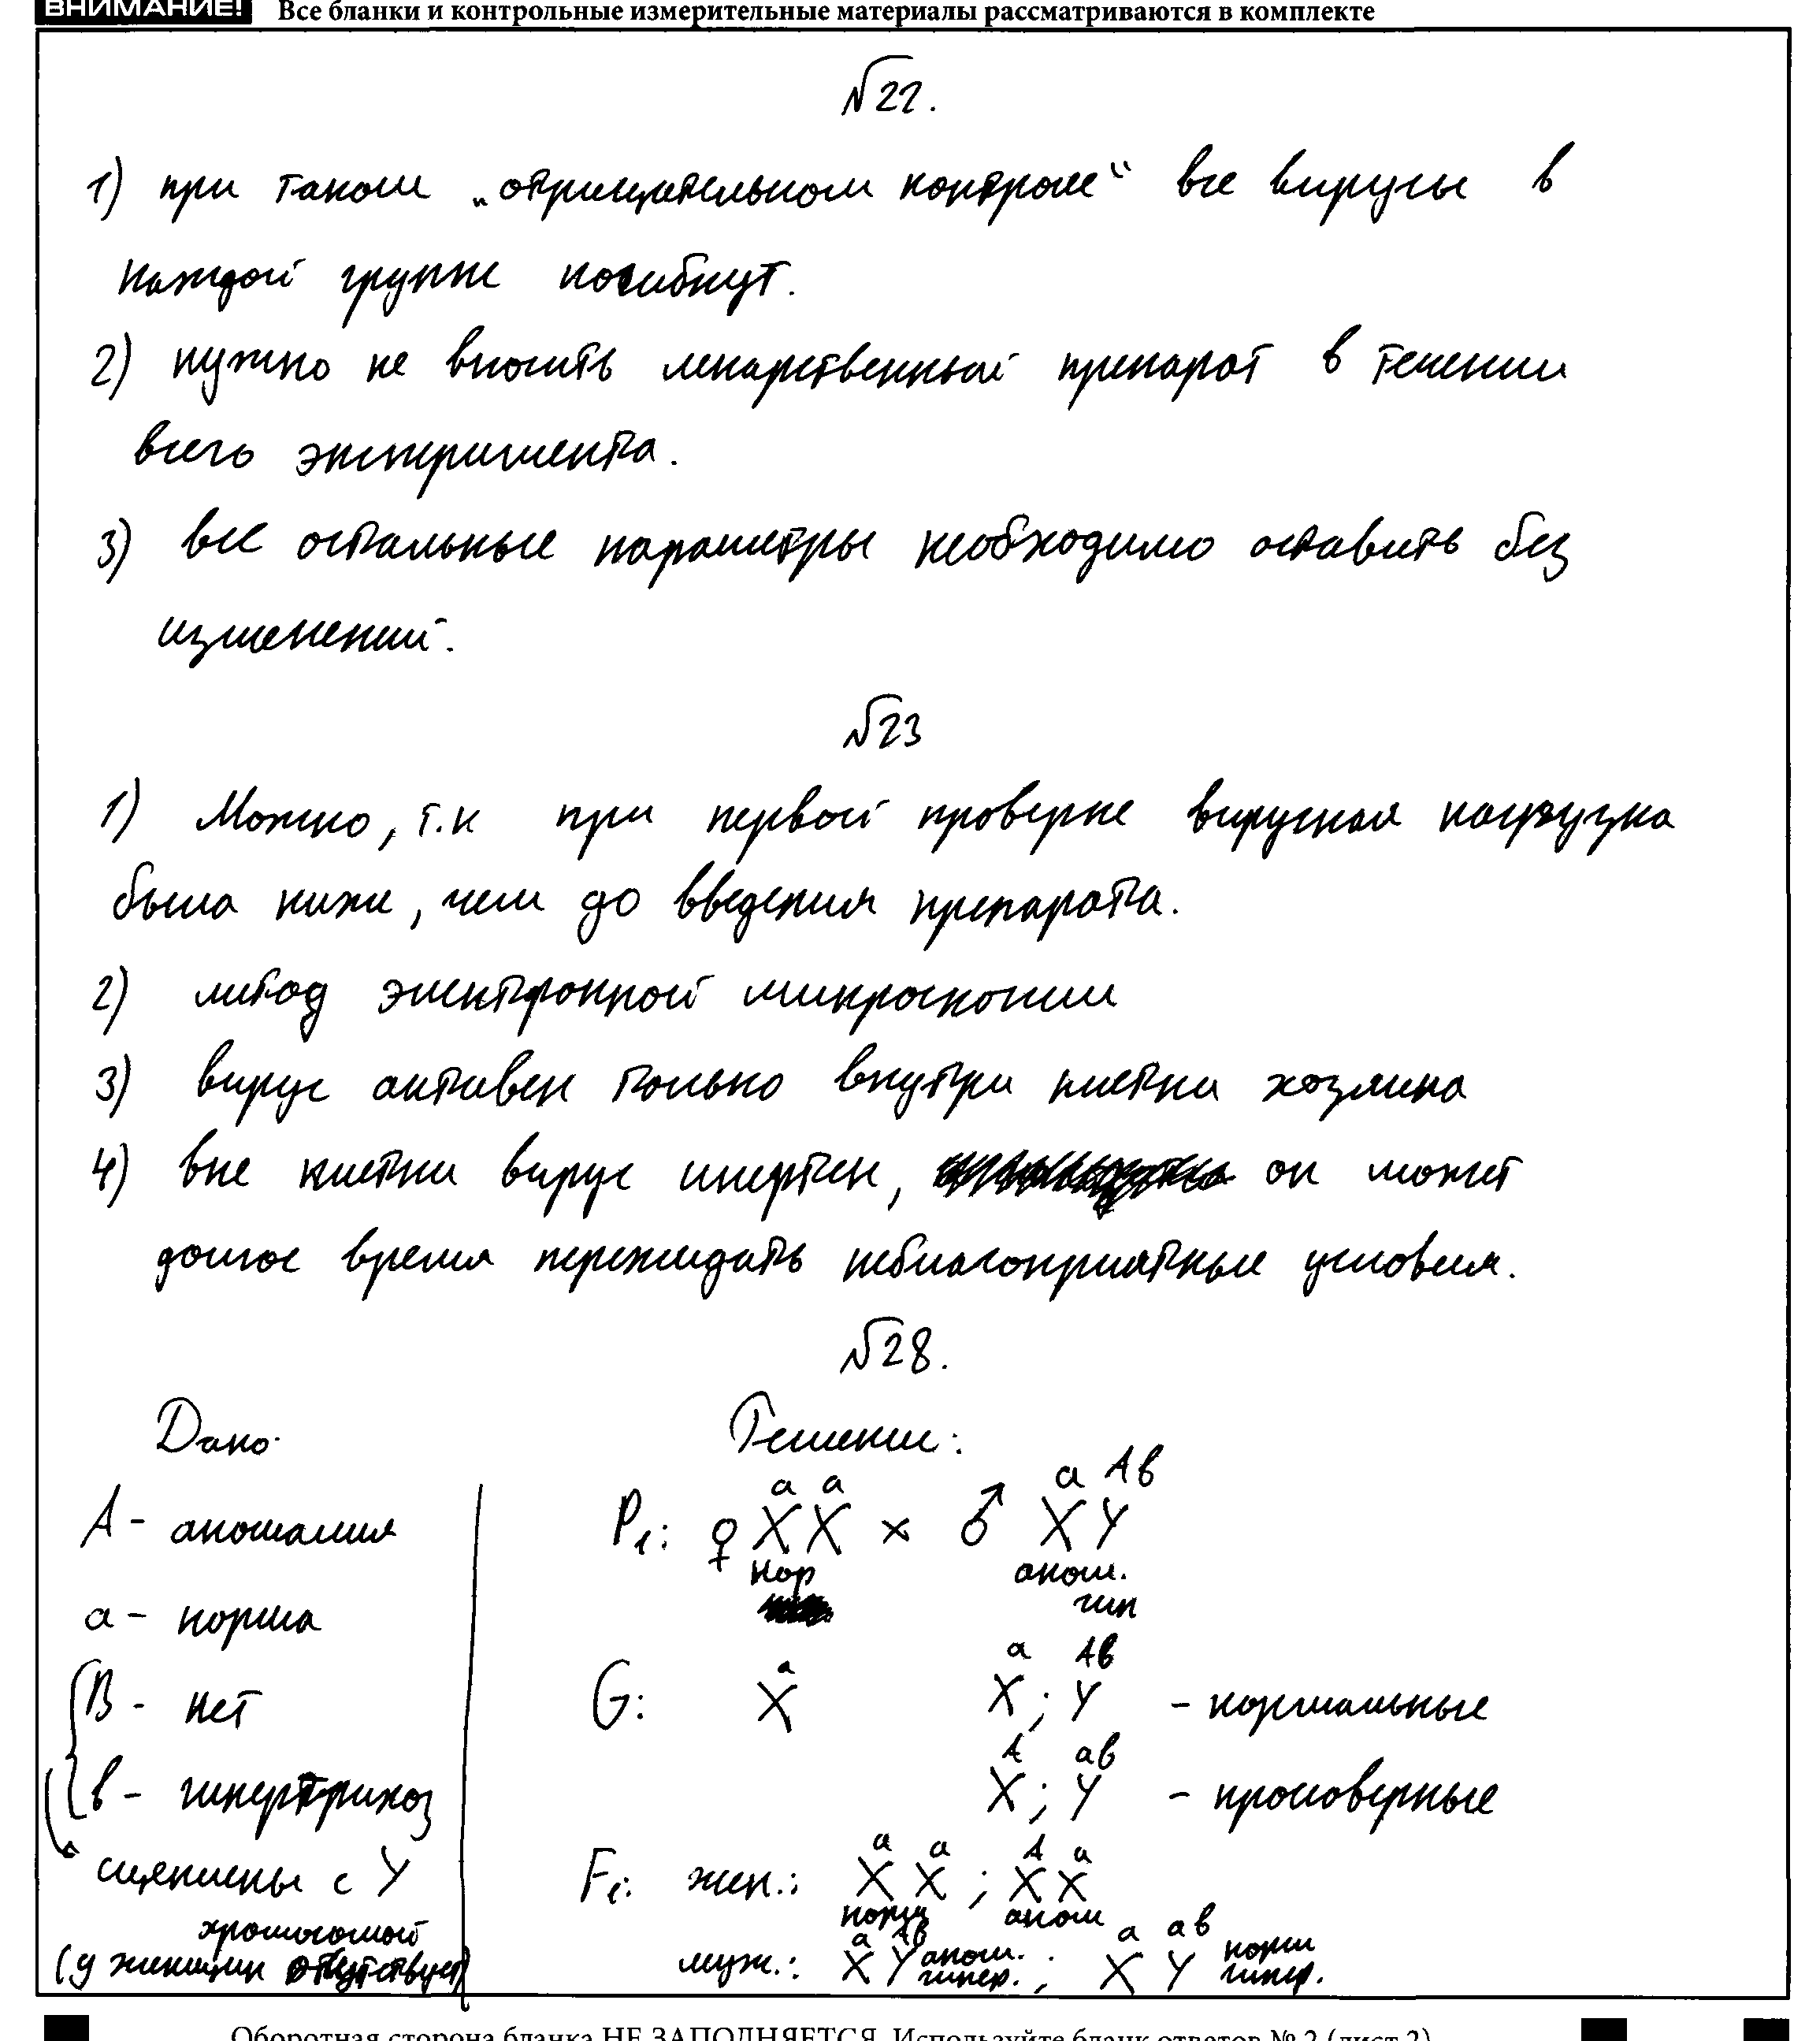 ВНИМАНИЕ! Все бланки и контрольные измерительные материалы рассматриваются в комплекте
№22.
1) при таком „отрицательном контроле“ все вирусы в
каждой группе погибнут.
2) нужно не вносить лекарственный препарат в течении
всего эксперимента.
3) все остальные параметры необходимо оставить без
изменений.
№23
1) Можно, т.к при первой проверке вирусная нагрузка
была ниже, чем до введения препарата.
2) метод электронной микроскопии
3) вирус активен только внутри клетки хозяина
4) вне клетки вирус инертен, он может
долгое время пережидать неблагоприятные условия.
№28.
Дано: Решение:
A - аномалия P₁: ♀ XᵃXᵃ × ♂ XᵃYᴬᵇ
нор аном. гип
a - норма
B - нет G: Xᵃ Xᵃ; Yᴬᵇ - нормальные
в - гипертрихоз Xᴬ; Yᵃᵇ - кроссоверные
сцеплены с Y F₁: жен.: XᵃXᵃ; XᴬXᵃ
хромосомой норм аном
(у женщин отсутствует) муж.: XᵃYᴬᵇ аном. гипер.; XᵃYᵃᵇ норм гипер.
Оборотная сторона бланка НЕ ЗАПОЛНЯЕТСЯ. Используйте бланк ответов № 2 (лист 2)